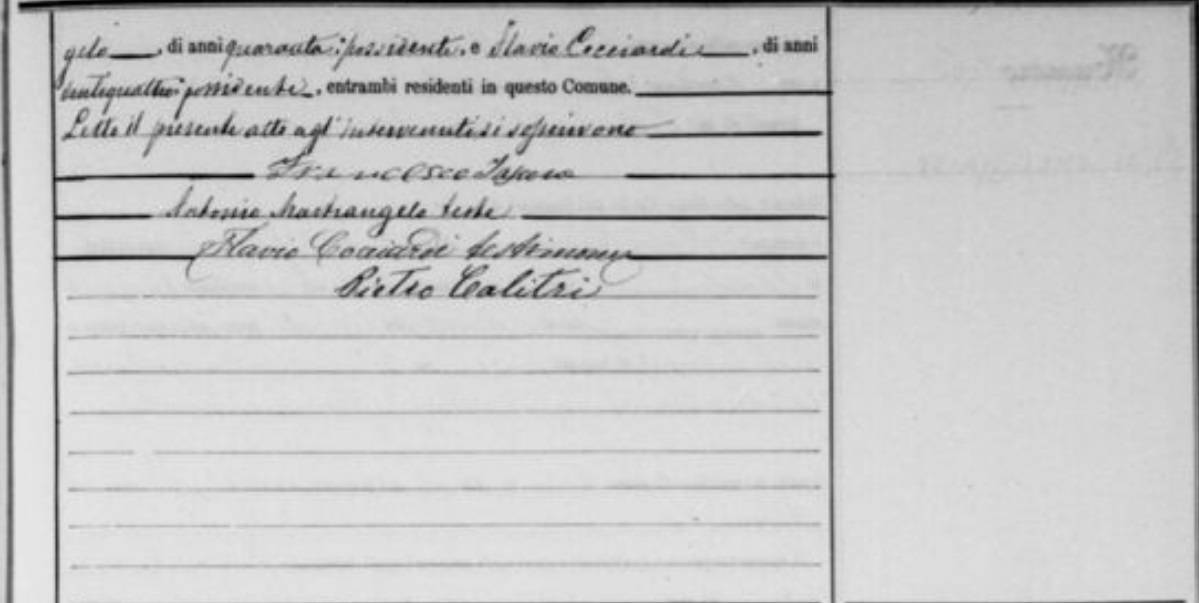 gelo, di anni quaranta possidente, e Flavio Cocciardi, di anni
ventiquattro possidente, entrambi residenti in questo Comune.
Letto il presente atto agl'intervenuti si soscrivono
Francesco
Antonio Mastrangelo teste
Flavio Cocciardi testimone
Pietro Calitri